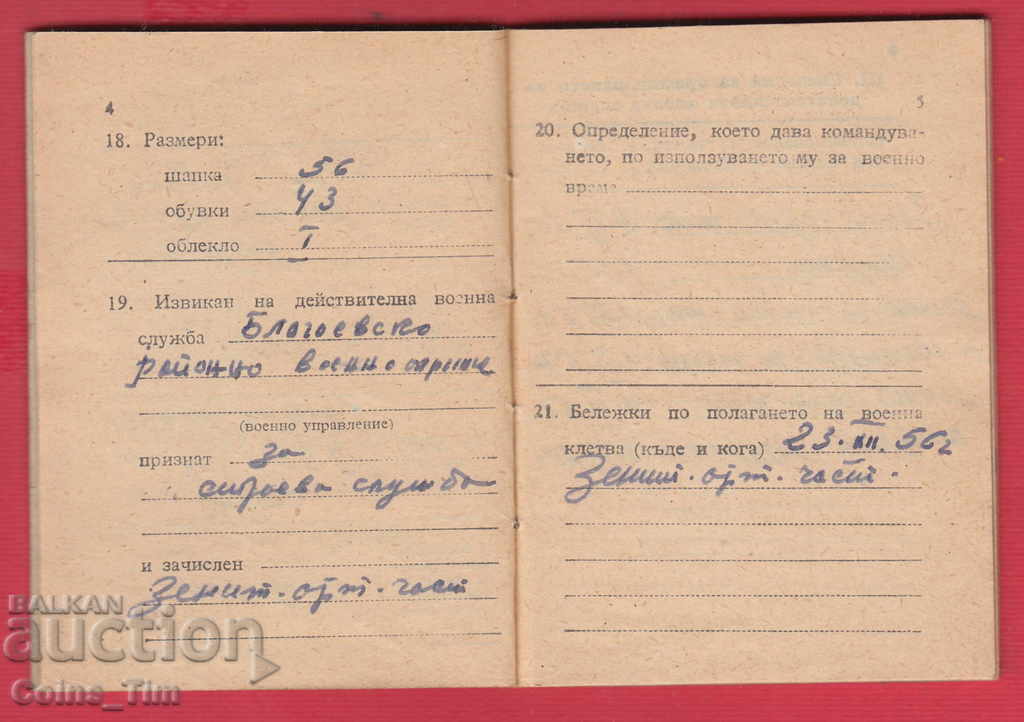 4
18. Размери:
шапка 56
обувки 43
облекло I
19. Извикан на действителна военна
служба Благоевско
районно военно
(военно управление)
признат за
строева служба
и зачислен
Зенит. арт. част
5
20. Определение, което дава командува-
нето, по използуването му за военно
време
21. Бележки по полагането на военна
клетва (къде и кога) 23. XII. 56г
Зенит. арт. част.
BALKAN
auction
Coins_Tim